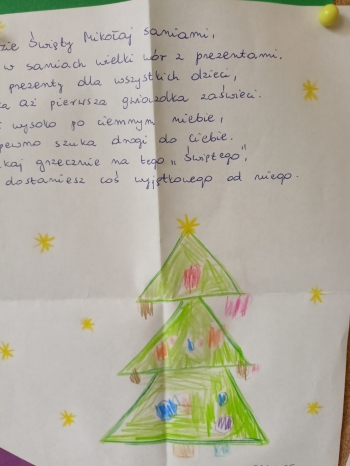 zie Święty Mikołaj saniami,
w saniach wielki wór z prezentami.
prezenty dla wszystkich dzieci,
aż pierwsza gwiazdka zaświeci.
wysoko po ciemnym niebie,
pewno szuka drogi do Ciebie.
kaj grzecznie na tego „Świętego",
dostaniesz coś wyjątkowego od niego.